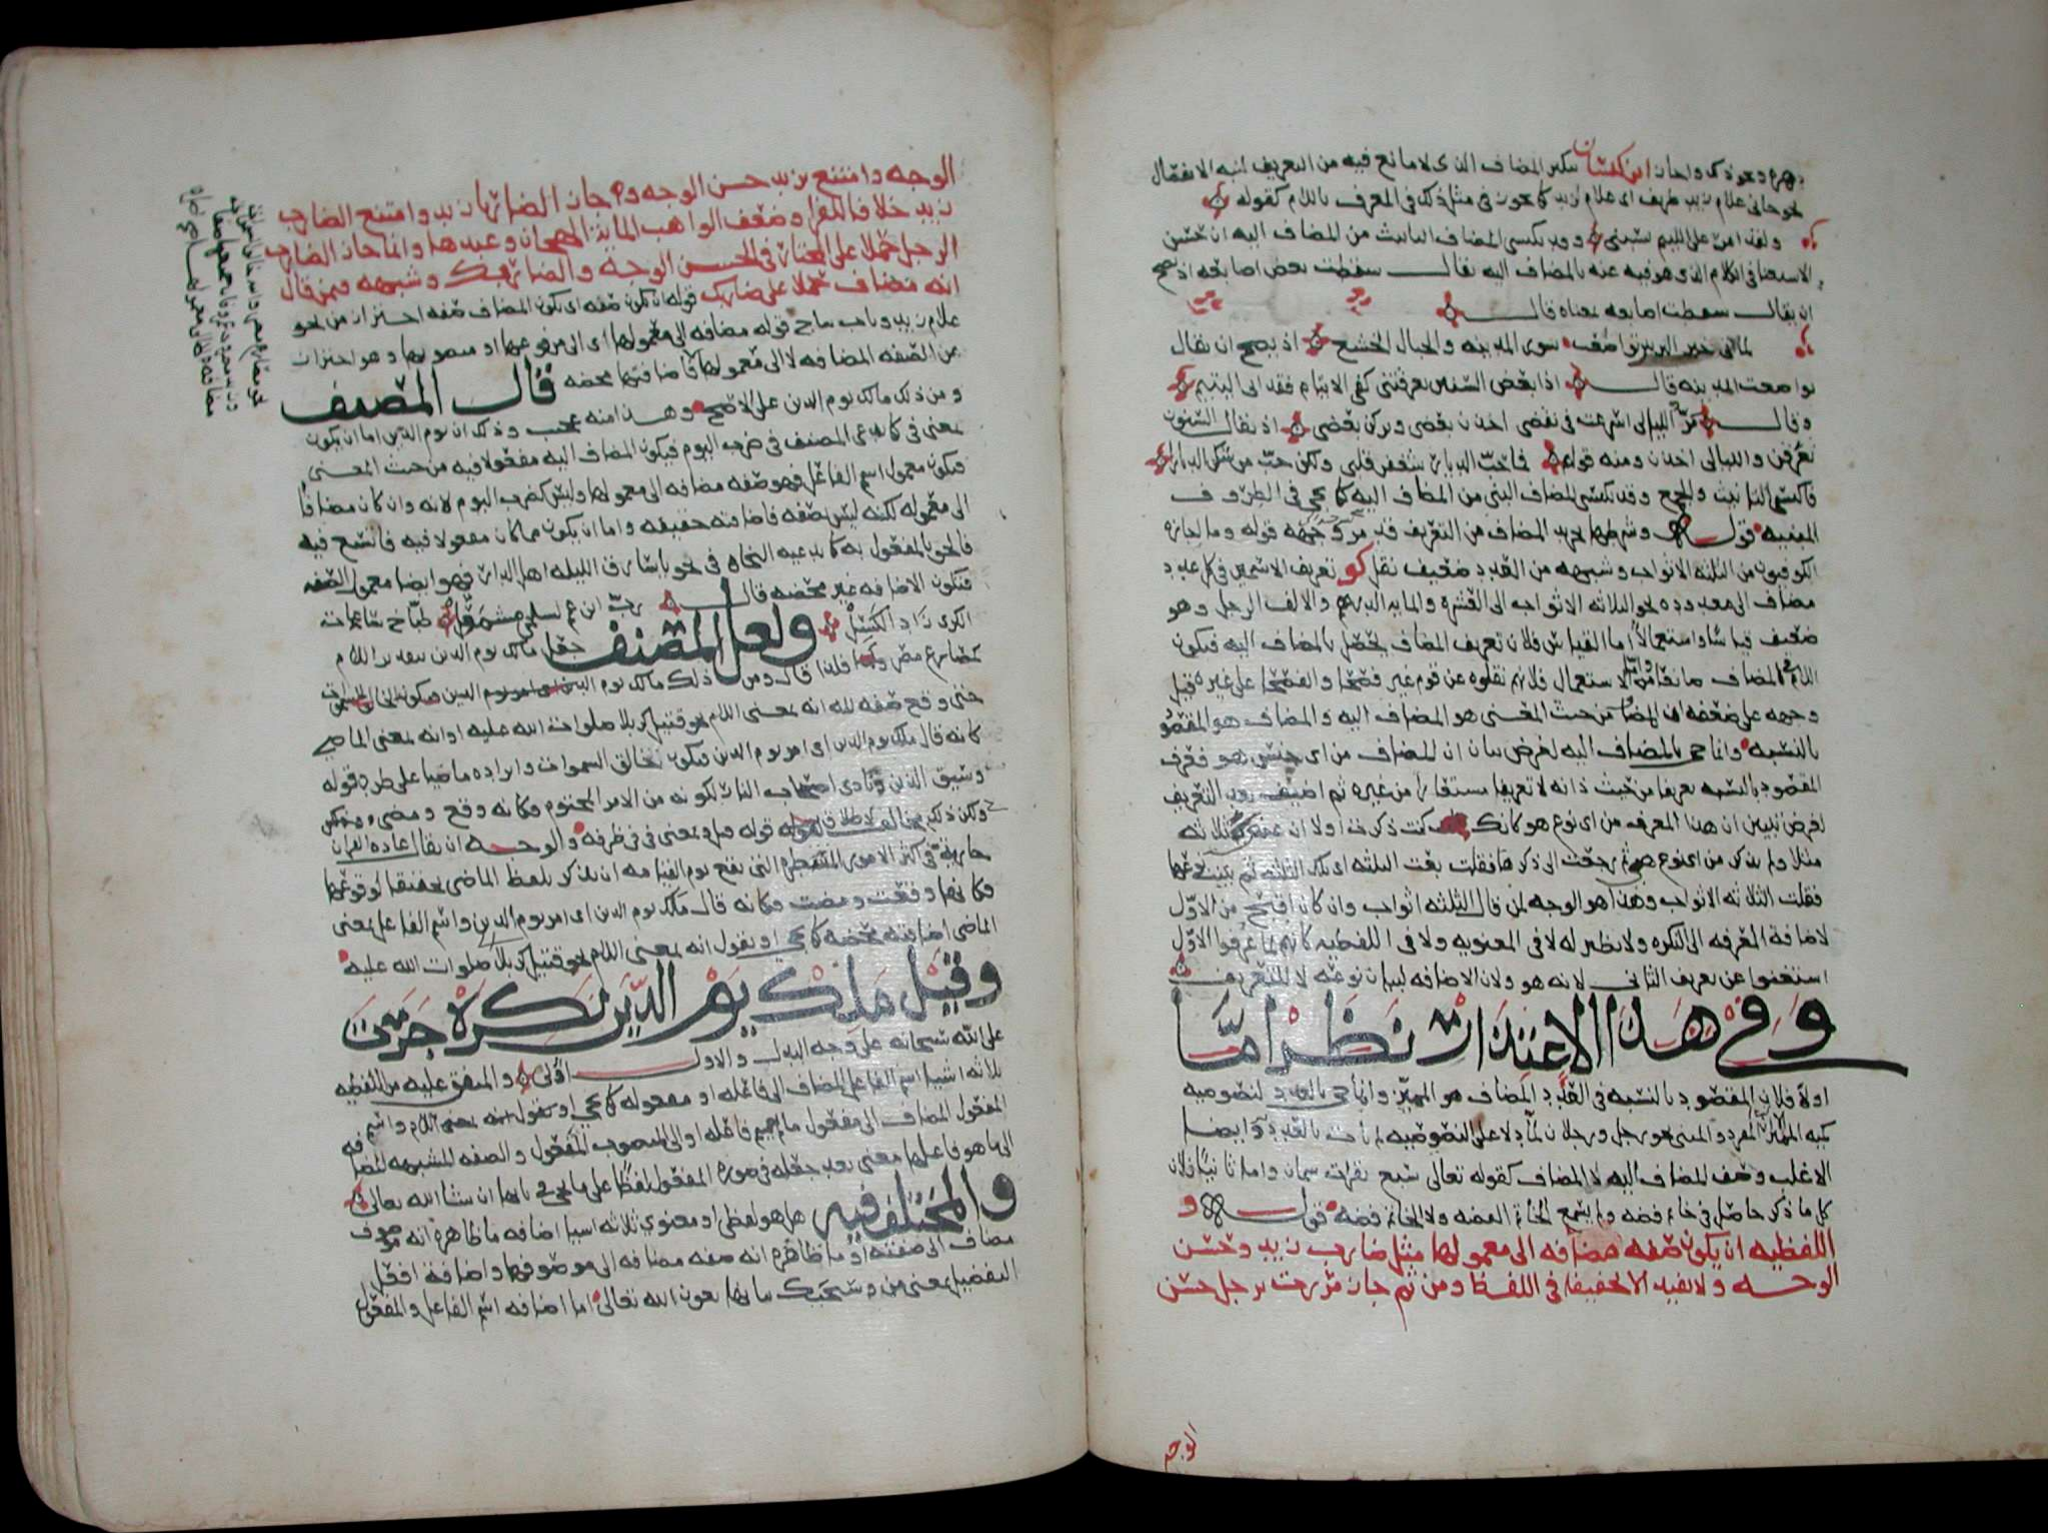 وجاز ابن كيسان تنكير المضاف الذى لا مانع فيه من التعريف لنية الانفصال
نحو جانى غلام زيد ظريف اى غلام لزيد كما يجوز فى مثل ذلك فى المعرف باللام كقوله
ولقد امر على اللئيم يسبنى وقد يكتسى المضاف التانيث من المضاف اليه ان حسن
الاستغنا فى الكلام الذى هو فيه عنه بالمضاف اليه يقال سقطت بعض اصابعه اذ يصح
ان يقال سقطت اصابعه بمعناه قال
لما اتى خبر الزبير تواضعت سور المدينه والجبال الخشع اذ يصح ان يقال
تواضعت المدينه قال اذا بعض السنين تعرقتنى كفى الايتام فقد ابى اليتيم
وقال مر الليالى اسرعت فى نقضى اخذن بعضى وتركن بعضى اذ يقال السنون
تعرقن والليالى اخذن ومنه قوله فما حب الديار شغفن قلبى ولكن حب من سكن الديارا
فاكتسى التانيث والجمع وقد يكتسى المضاف البنى من المضاف اليه كما يجى فى الظروف
المبنيه قوله وشرطها تجريد المضاف من التعريف قد مر وجهه قوله وما اجازه
الكوفيون من الثلثه الاثواب وشبهه من العدد ضعيف نقل كو تعريف الاسمين فى كل عدد
مضاف الى معدوده نحو الثلاثه الاثواب الى العشره والمايه الدرهم والالف الرجل وهو
ضعيف قياسا واستعمالا اما القياس فلان تعريف المضاف يحصل بالمضاف اليه فيكون
اللام فى المضاف ضائعا واما الاستعمال فلانهم نقلوه عن قوم غير فصحا والفصحا على غيره قيل
وجهه على ضعفه ان المضاف من حيث المعنى هو المضاف اليه والمضاف هو المقصود
بالنسبه وانما جى بالمضاف اليه لغرض بيان ان المضاف من اى جنس هو فعرف
المقصود بالنسبه تعريفا من حيث ذاته لا تعريفا مستعارا من غيره ثم اضيف بعد التعريف
لغرض تبيين ان هذا المعرف من اى نوع هو كانك كنت ذكرت اولا ان عندى ثلاثه
مثلا ولم تذكر من اى نوع هى ثم رجعت الى ذكرها فقلت بعت الثلثه اى تلك الثلثه ثم بينت نوعها
فقلت الثلاثه الاثواب وهذا هو الوجه لمن قال الثلثه اثواب وان كان اقبح من الاول
لاضافة المعرفه الى النكره ولا نظير له لا فى المعنويه ولا فى اللفظيه كانهم لما عرفوا الاول
استغنوا عن تعريف الثانى لانه هو ولان الاضافه لبيان نوعه لا للتعريف
وفى هذا الاعتذار نظر اما
اولا فلان المقصود بالنسبه فى العدد المضاف هو المميز وانما جى بالعدد لنصوصيه
كمية المميز المفرد والمثنى نحو رجل ورجلان لما دلا على النصوصيه لم يات بالعدد وايضا
الاغلب وصف المضاف اليه لا المضاف كقوله تعالى سبع بقرات سمان واما ثانيا فلان
كل ما ذكر حاصل فى خاتم فضه ولم يسمع الخاتم الفضه ولا الخاتم فضه قوله و
اللفظيه ان يكون صفه مضافه الى معمولها مثل ضارب زيد وحسن
الوجه ولا تفيد الا تخفيفا فى اللفظ ومن ثم جاز مررت برجل حسن
الوجه
الوجه وامتنع بزيد حسن الوجه وجاز الضاربا زيد وامتنع الضارب
زيد خلافا للفرا وضعف الواهب المايه الهجان وعبدها وانما جاز الضارب
الرجل حملا على المختار فى الحسن الوجه والضاربك وشبهه فيمن قال
انه مضاف حملا على ضاربك قوله ان يكون صفه اى يكون المضاف صفه احتراز من نحو
غلام زيد وباب ساج قوله مضافه الى معمولها اى الى مرفوعها او منصوبها وهو احتراز
من الصفه المضافه لا الى معمولها فاضافتها محضه قال المصنف
ومن ذلك مالك يوم الدين على الاصح وهذا منه عجيب وذلك ان يوم الدين اما ان يكون
بمعنى فى كما يدعى المصنف فى ضرب اليوم فيكون المضاف اليه مفعولا فيه من حيث المعنى
فيكون معمول اسم الفاعل فهو صفه مضافه الى معمولها وليس كضرب اليوم لانه وان كان مضافا
الى معموله لكنه ليس بصفه فاضافته حقيقيه واما ان يكون مما كان مفعولا فيه فاتسع فيه
فالحق بالمفعول به كما يدعيه النحاه فى نحو يا سارق الليله اهل الدار فهو ايضا معمول الصفه
فتكون الاضافه غير محضه قال رب ابن عم لسليمى مشمعل طباخ ساعات
الكرى زاد الكسل ولعل المصنف جعل مالك يوم الدين بتقدير اللام
كضارع مصر وكذا فلذا قال ومن ذلك مالك يوم الدين
حتى وقع صفه لله انه بمعنى اللام نحو قتيل كربلا صلوات الله عليه او انه بمعنى الماضى
كانه قال ملك يوم الدين اى امور يوم الدين فيكون كخالق السموات وايراده ماضيا على طرد قوله
وسيق الذين ونادى اصحاب النار لكونه من الامر المحتوم فكانه وقع ومضى
والوجه ان يقال عاده القران
جاريه فى اكثر الامور المنتظره التى تقع يوم القيامه ان يذكر بلفظ الماضى تحقيقا لوقوعها
فكانها وقعت ومضت فكانه قال مالك يوم الدين اى امور يوم الدين واسم الفاعل بمعنى
الماضى اضافته محضه كما يجى او يقول انه بمعنى اللام نحو قتيل كربلا صلوات الله عليه
وقيل مالك يوم الدين نكره جرت
على الله سبحانه على وجه البدل والاول اولى والمتفق عليه من اللفظيه
ثلاثه اشيا اسم الفاعل المضاف الى فاعله او مفعوله كما يجى او يقول انه بمعنى اللام واسم
المفعول المضاف الى مفعول ما لم يسم فاعله او الى المنصوب المفعول والصفه المشبهه المضافه
الى ما هو فاعلها معنى بعد جعله فى صوره المفعول لفظا على ما يجى فى بابها ان شا الله تعالى
والمختلف فيه هل هو لفظى او معنوى ثلاثه اشيا اضافه ما ظاهره انه موصوف
مضاف الى صفته او ما ظاهره انه صفه مضافه الى موصوفها واضافة افعل
التفضيل بمعنى من وسيجيك بيانها بعون الله تعالى اما اضافه اسم الفاعل والمفعول